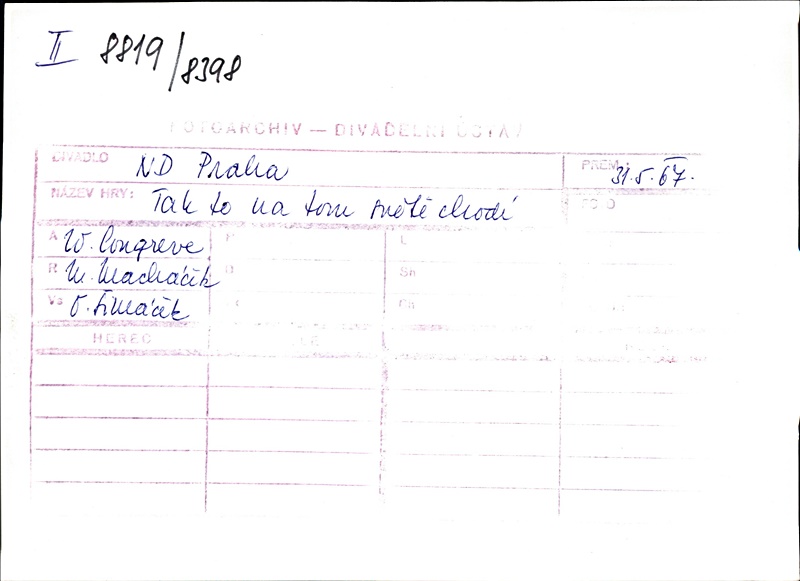 II 8819/8398
FOTOARCHIV — DIVADELNÍ ÚSTAV
DIVADLO ND Praha PREM: 31.5.67.
NÁZEV HRY: Tak to na tom světě chodí FOTO
A W. Congreve P L
R M. Macháček D Sn
Vs O. Šimáček
HEREC